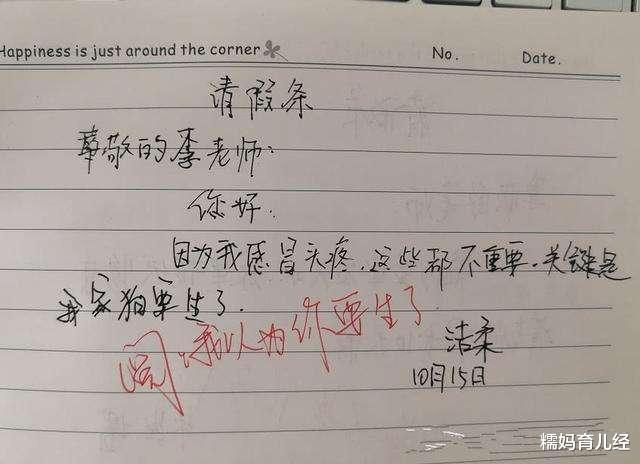 Happiness is just around the corner
No.
Date.
请假条
尊敬的李老师:
你好.
因为我感冒头疼.这些都不重要.关键是
我家狗要生了.
阅.我以为你要生了
洁柔
10月15日
糯妈育儿经